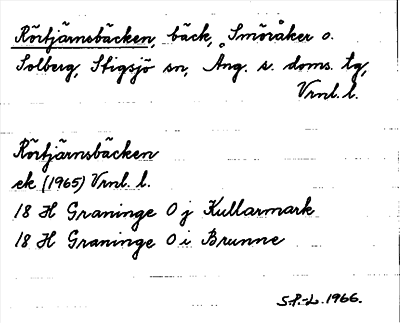 Rörtjärnsbäcken, bäck, Smöråker o.
Solberg, Stigsjö sn, Ång. s. doms. tg,
Vrnl. l.
Rörtjärnsbäcken
ek (1965) Vrnl. l.
18 H Graninge 0 j Kullarmark
18 H Graninge 0 i Brunne
S.P.-L. 1966.